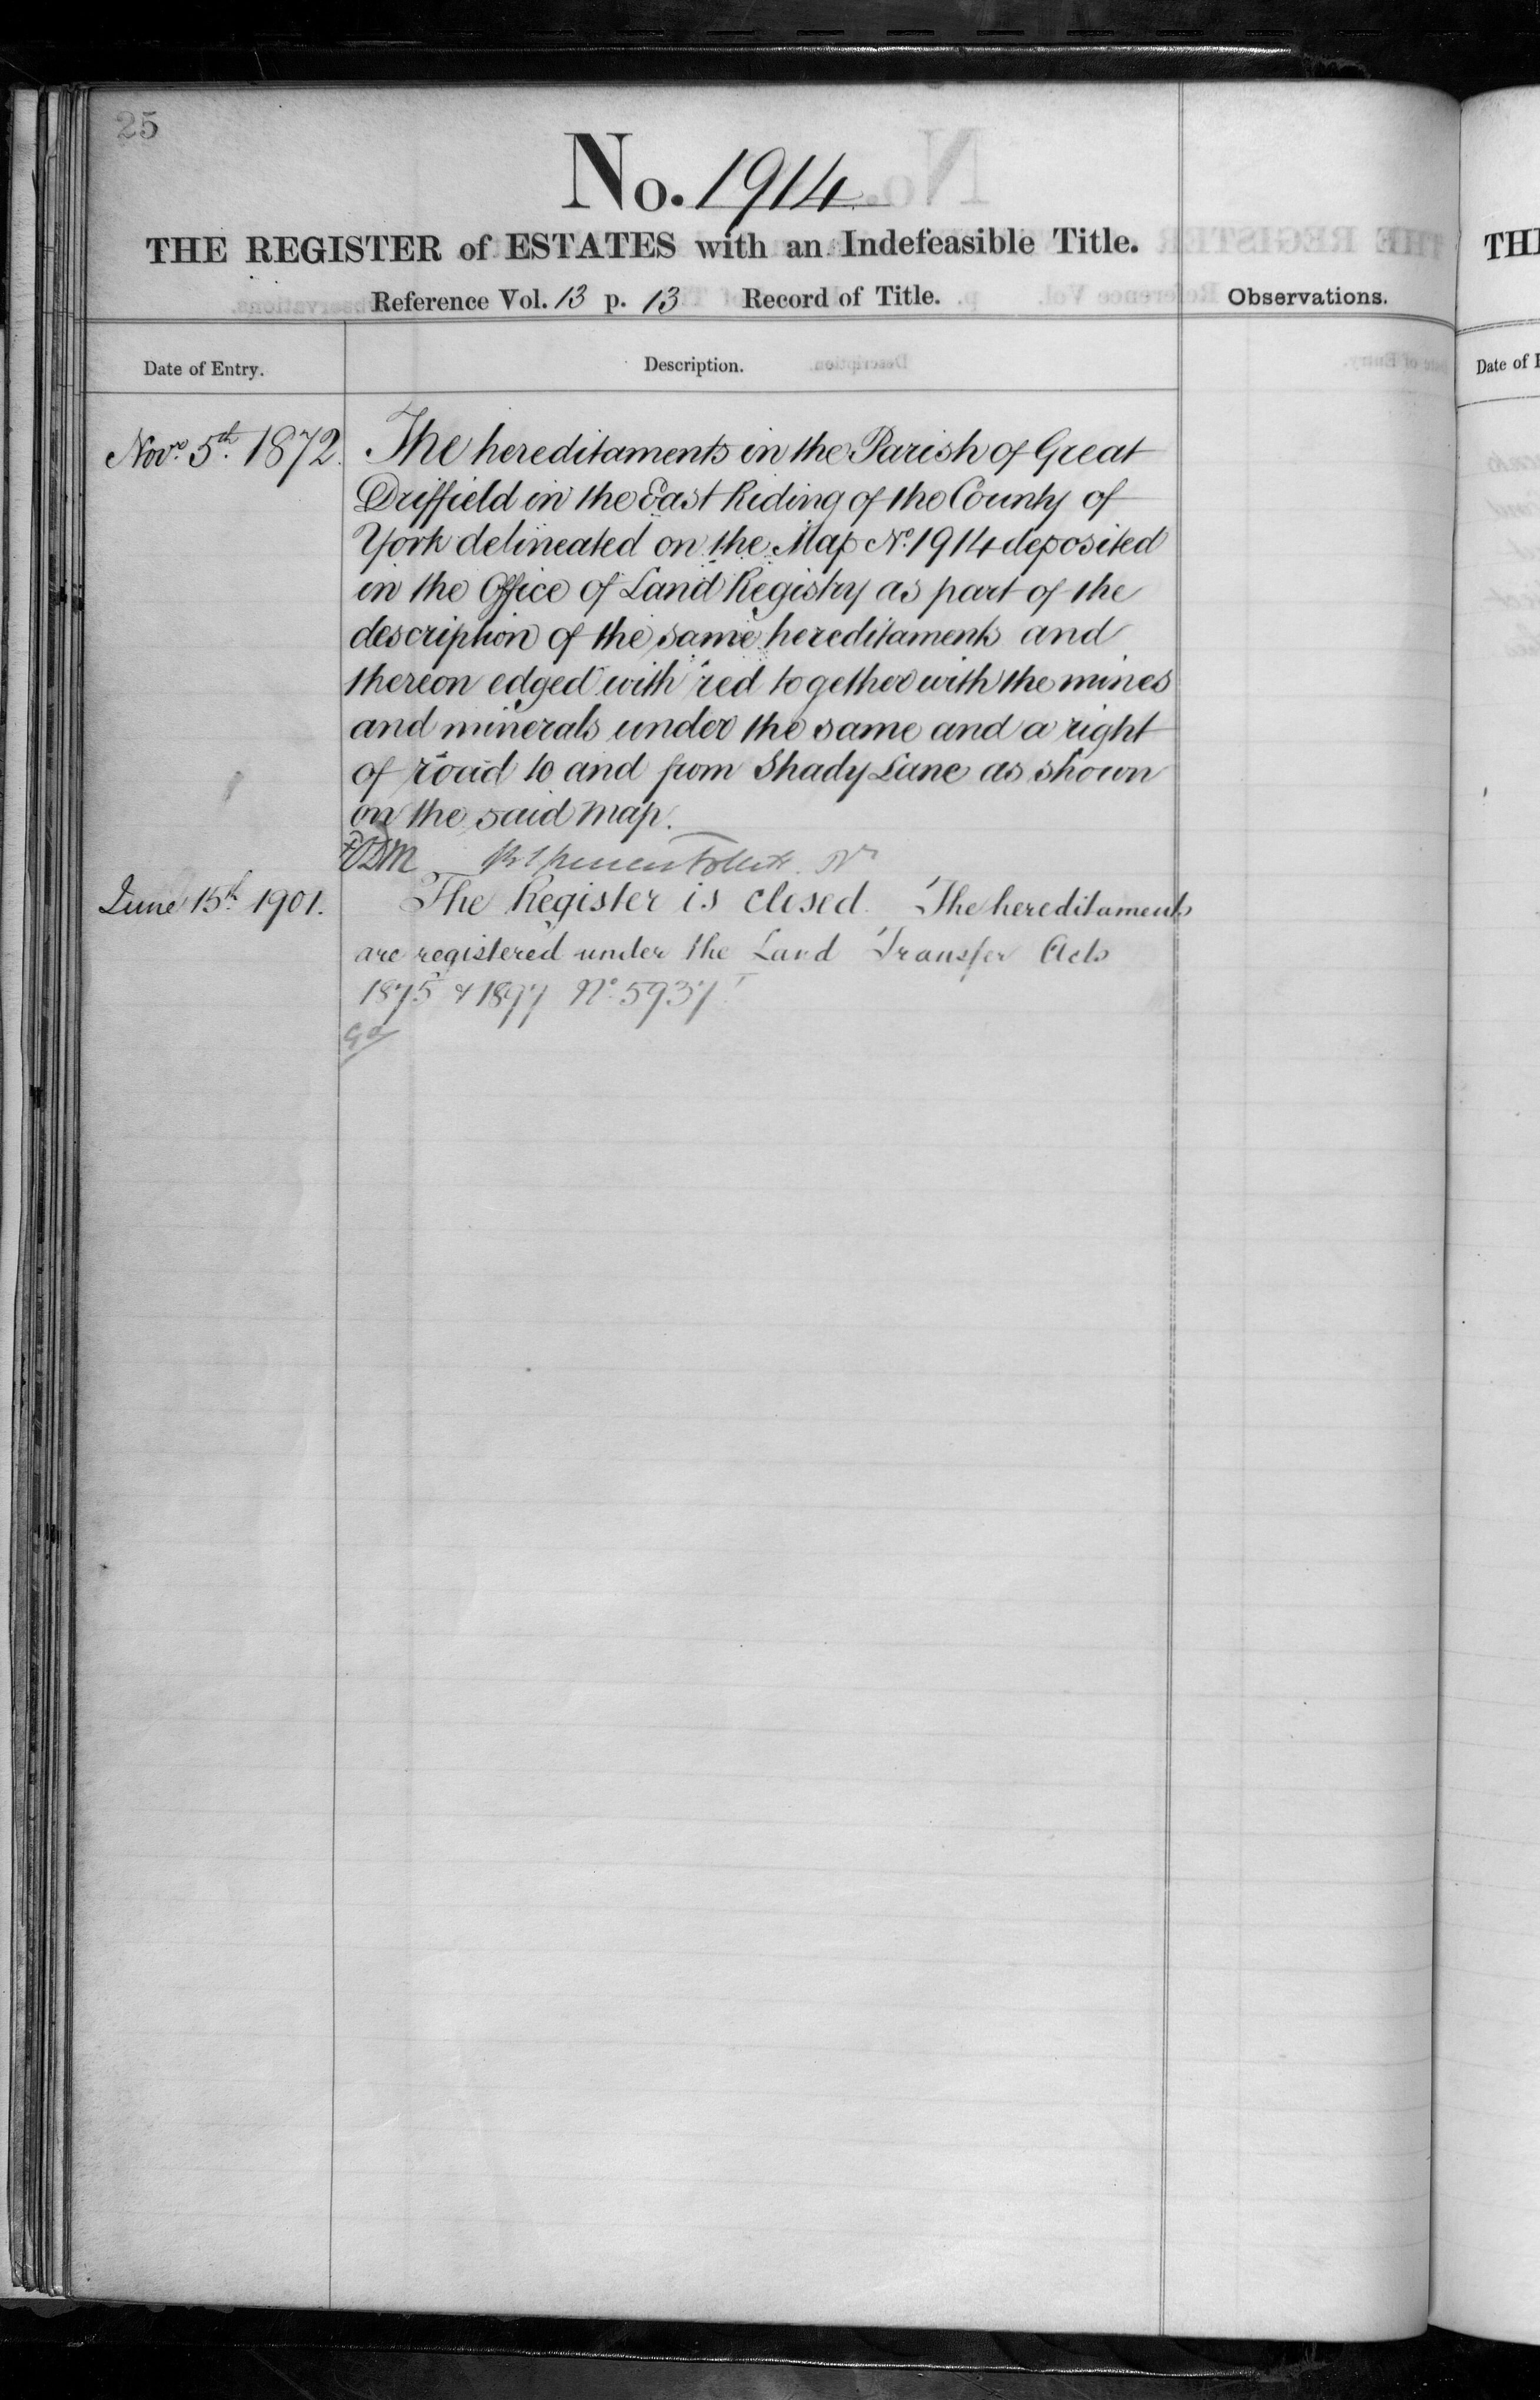 25
No. 1914
THE REGISTER of ESTATES with an Indefeasible Title.
Reference Vol. 13 p. 13 Record of Title.
Observations.
Date of Entry.
Description.
Novr. 5th. 1872.
The hereditaments in the Parish of Great
Driffield in the East Riding of the County of
York delineated on the Map No. 1914 deposited
in the Office of Land Registry as part of the
description of the same hereditaments and
thereon edged with red together with the mines
and minerals under the same and a right
of road to and from Shady Lane as shown
on the said map.
June 15th. 1901.
The Register is closed. The hereditaments
are registered under the Land Transfer Acts
1875 & 1897 No. 5937
TH
Date of